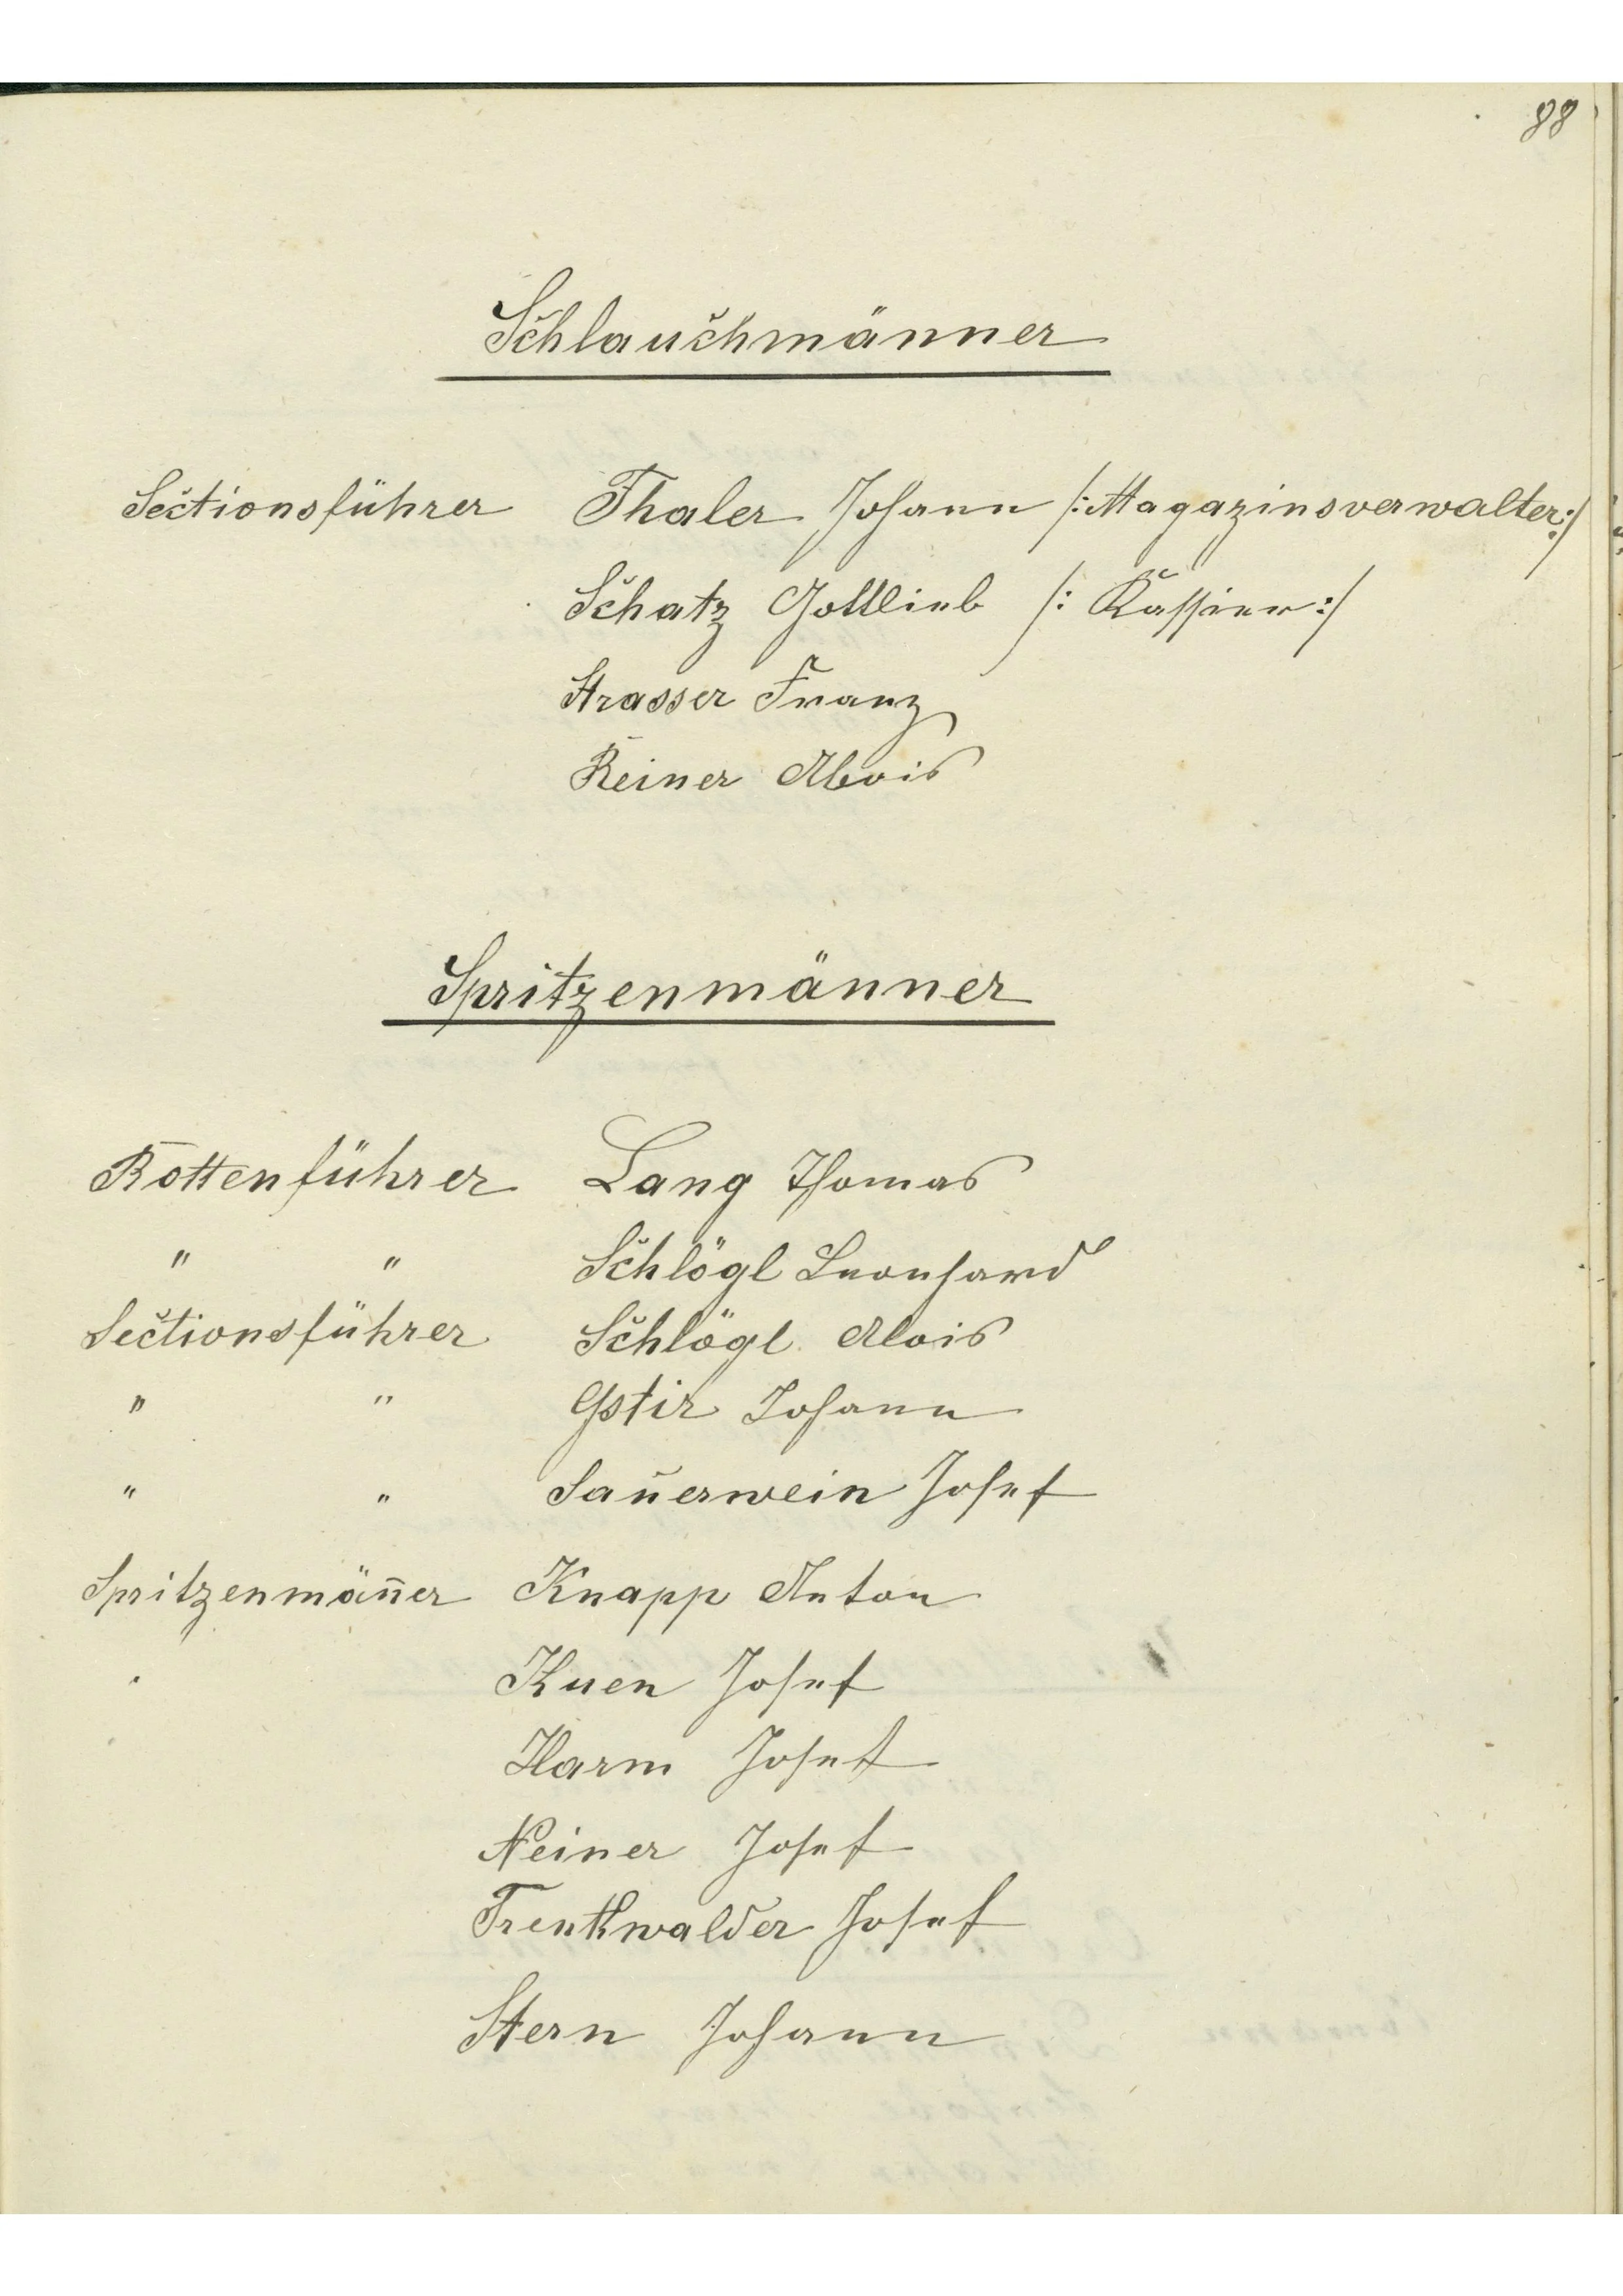 88
Schlauchmänner
Sectionsführer Thaler Johann /: Magazinsverwalter :/
Schatz Gottlieb /: Kassier :/
Strasser Franz
Reiner Alois
Spritzenmänner
Rottenführer Lang Thomas
" " Schlögl Leonhard
Sectionsführer Schlögl Alois
" " Gstir Johann
" " Sauerwein Josef
Spritzenmäñer Knapp Anton
Kuen Josef
Harm Josef
Neiner Josef
Trenkwalder Josef
Stern Johann